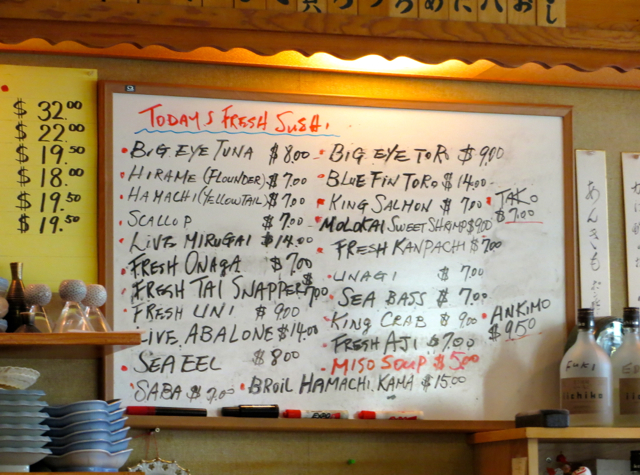 $ 32.00
$ 22.00
$ 19.50
$ 18.00
$ 19.50
$ 19.50
TODAYS FRESH SUSHI
BIG EYE TUNA $8.00
HIRAME (FLOUNDER) $7.00
HAMACHI (YELLOWTAIL) $7.00
SCALLOP $7.00
LIVE MIRUGAI $14.00
FRESH ONAGA $7.00
FRESH TAI SNAPPER $7.00
FRESH UNI $9.00
LIVE ABALONE $14.00
SEA EEL $8.00
SABA $7.00
BIG EYE TORO $9.00
BLUE FIN TORO $14.00
KING SALMON $7.00
MOLOKAI SWEET SHRIMP $9.00
FRESH KANPACHI $7.00
UNAGI $7.00
SEA BASS $7.00
KING CRAB $9.00
FRESH AJI $7.00
MISO SOUP $5.00
BROIL HAMACHI KAMA $15.00
TAKO
$7.00
ANKIMO
$9.50
あんきも
FUKI
iichiko